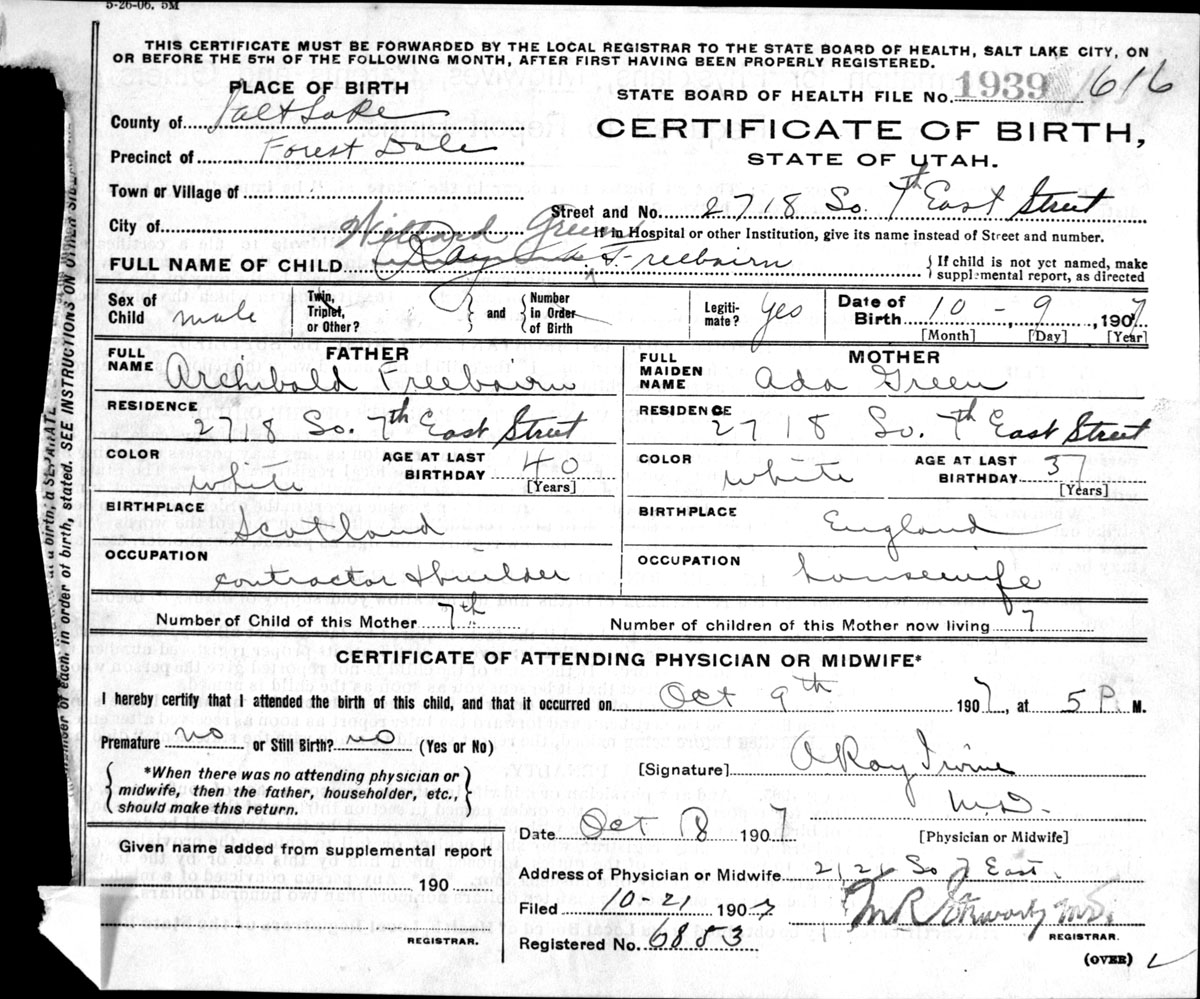 5-26-06. 5M
THIS CERTIFICATE MUST BE FORWARDED BY THE LOCAL REGISTRAR TO THE STATE BOARD OF HEALTH, SALT LAKE CITY, ON
OR BEFORE THE 5TH OF THE FOLLOWING MONTH, AFTER FIRST HAVING BEEN PROPERLY REGISTERED.
PLACE OF BIRTH
STATE BOARD OF HEALTH FILE No. 1939 616
County of Salt Lake
CERTIFICATE OF BIRTH,
Precinct of Forest Dale
STATE OF UTAH.
Town or Village of
Street and No. 2718 So. 7th East Street
City of
If in Hospital or other Institution, give its name instead of Street and number.
Willard Green
FULL NAME OF CHILD Ray Freebairn
If child is not yet named, make
supplemental report, as directed
Sex of Child male
Twin, Triplet, or Other?
and
Number in Order of Birth
Legiti-mate? Yes
Date of Birth 10 - 9, 1907
[Month] [Day] [Year]
FATHER
FULL NAME Archibald Freebairn
MOTHER
FULL MAIDEN NAME Ada Green
RESIDENCE 2718 So. 7th East Street
RESIDENCE 2718 So. 7th East Street
COLOR white
AGE AT LAST BIRTHDAY 40
[Years]
COLOR white
AGE AT LAST BIRTHDAY 37
[Years]
BIRTHPLACE Scotland
BIRTHPLACE England
OCCUPATION contractor & builder
OCCUPATION housewife
Number of Child of this Mother 7th
Number of children of this Mother now living 7
CERTIFICATE OF ATTENDING PHYSICIAN OR MIDWIFE*
I hereby certify that I attended the birth of this child, and that it occurred on Oct 9th 1907, at 5 P. M.
Premature no or Still Birth? no (Yes or No)
*When there was no attending physician or
midwife, then the father, householder, etc.,
should make this return.
[Signature] A Ray Irvine
M.D.
Date Oct 1907
[Physician or Midwife]
Given name added from supplemental report
190
REGISTRAR.
Address of Physician or Midwife 2121 So 7 East.
Filed 10-21 1907
M R Stewart M.D.
REGISTRAR.
Registered No. 6853
(OVER)
of each, in order of birth, stated. SEE INSTRUCTIONS ON OTHER SIDE
at a birth, a SEPARATE